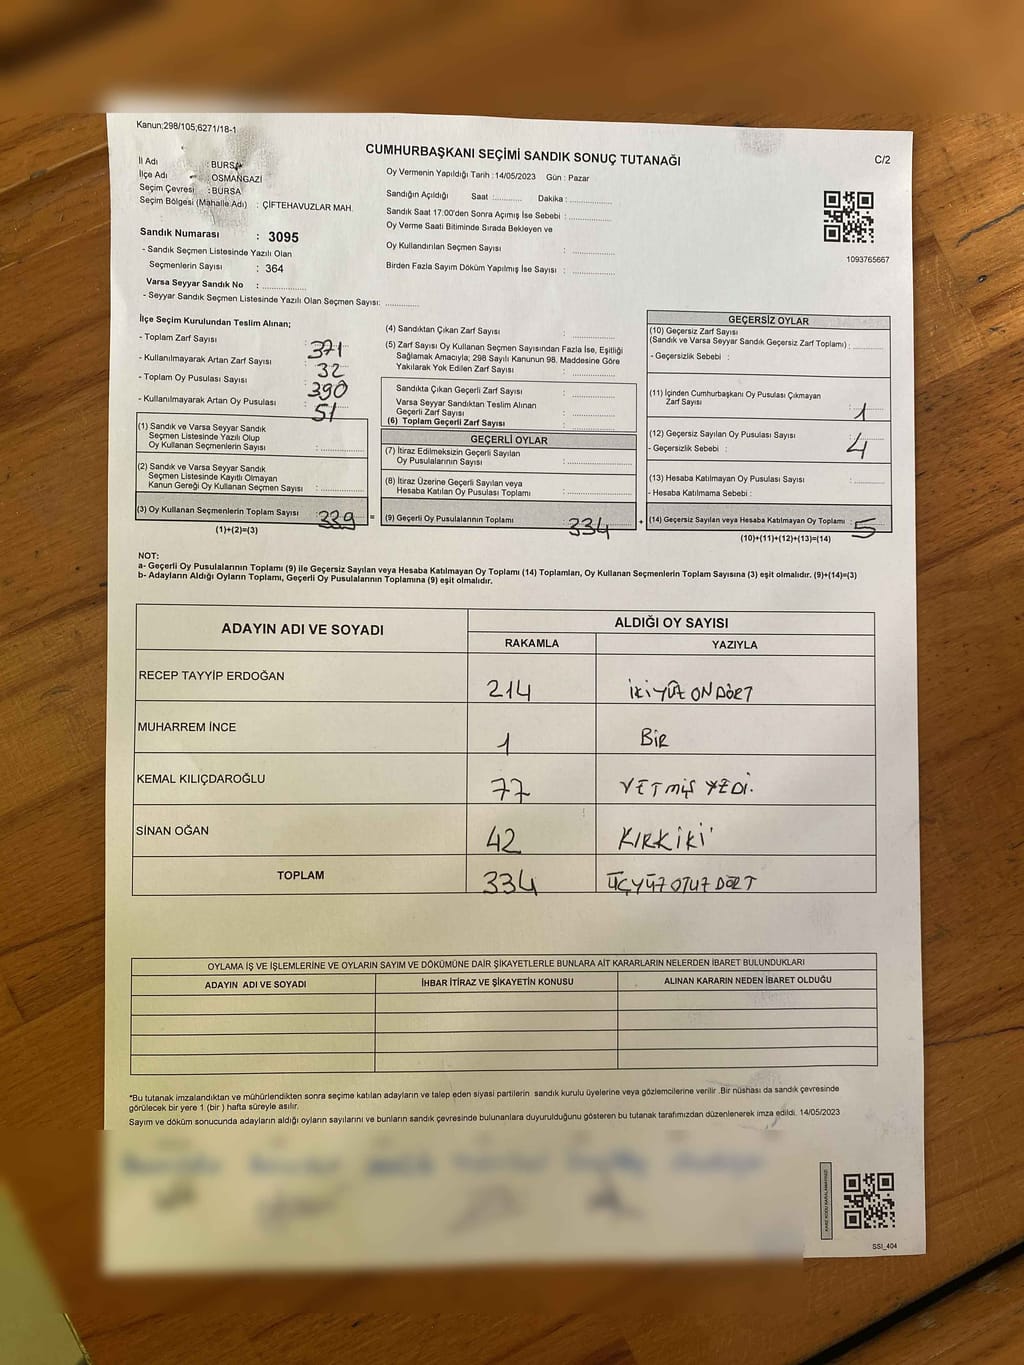 Kanun:298/105,6271/18-1
CUMHURBAŞKANI SEÇİMİ SANDIK SONUÇ TUTANAĞI
C/2
İl Adı : BURSA
İlçe Adı : OSMANGAZİ
Seçim Çevresi : BURSA
Seçim Bölgesi (Mahalle Adı) : ÇİFTEHAVUZLAR MAH.
Sandık Numarası : 3095
- Sandık Seçmen Listesinde Yazılı Olan
Seçmenlerin Sayısı : 364
Varsa Seyyar Sandık No : ..............
- Seyyar Sandık Seçmen Listesinde Yazılı Olan Seçmen Sayısı: ............
Oy Vermenin Yapıldığı Tarih : 14/05/2023 Gün : Pazar
Sandığın Açıldığı Saat :............ Dakika : ..............
Sandık Saat 17:00'den Sonra Açımış İse Sebebi : ..............
Oy Verme Saati Bitiminde Sırada Bekleyen ve
Oy Kullandırılan Seçmen Sayısı : ..............
Birden Fazla Sayım Döküm Yapılmış İse Sayısı : ..............
1093765667
İlçe Seçim Kurulundan Teslim Alınan;
- Toplam Zarf Sayısı : 371
- Kullanılmayarak Artan Zarf Sayısı : 32
- Toplam Oy Pusulası Sayısı : 390
- Kullanılmayarak Artan Oy Pusulası : 51
(1) Sandık ve Varsa Seyyar Sandık
Seçmen Listesinde Yazılı Olup
Oy Kullanan Seçmenlerin Sayısı : ..............
(2) Sandık ve Varsa Seyyar Sandık
Seçmen Listesinde Kayıtlı Olmayan
Kanun Gereği Oy Kullanan Seçmen Sayısı : ..............
(3) Oy Kullanan Seçmenlerin Toplam Sayısı : 339 =
(1)+(2)=(3)
(4) Sandıktan Çıkan Zarf Sayısı : ..............
(5) Zarf Sayısı Oy Kullanan Seçmen Sayısından Fazla İse, Eşitliği
Sağlamak Amacıyla; 298 Sayılı Kanunun 98. Maddesine Göre
Yakılarak Yok Edilen Zarf Sayısı : ..............
Sandıkta Çıkan Geçerli Zarf Sayısı : ..............
Varsa Seyyar Sandıktan Teslim Alınan
Geçerli Zarf Sayısı : ..............
(6) Toplam Geçerli Zarf Sayısı : ..............
GEÇERLİ OYLAR
(7) İtiraz Edilmeksizin Geçerli Sayılan
Oy Pusulalarının Sayısı : ..............
(8) İtiraz Üzerine Geçerli Sayılan veya
Hesaba Katılan Oy Pusulası Toplamı : ..............
(9) Geçerli Oy Pusulalarının Toplamı 334 +
GEÇERSİZ OYLAR
(10) Geçersiz Zarf Sayısı
(Sandık ve Varsa Seyyar Sandık Geçersiz Zarf Toplamı) : ..........
- Geçersizlik Sebebi :
(11) İçinden Cumhurbaşkanı Oy Pusulası Çıkmayan
Zarf Sayısı : 1
(12) Geçersiz Sayılan Oy Pusulası Sayısı : 4
- Geçersizlik Sebebi :
(13) Hesaba Katılmayan Oy Pusulası Sayısı : ..........
- Hesaba Katılmama Sebebi :
(14) Geçersiz Sayılan veya Hesaba Katılmayan Oy Toplamı : 5
(10)+(11)+(12)+(13)=(14)
NOT:
a- Geçerli Oy Pusulalarının Toplamı (9) ile Geçersiz Sayılan veya Hesaba Katılmayan Oy Toplamı (14) Toplamları, Oy Kullanan Seçmenlerin Toplam Sayısına (3) eşit olmalıdır. (9)+(14)=(3)
b- Adayların Aldığı Oyların Toplamı, Geçerli Oy Pusulalarının Toplamına (9) eşit olmalıdır.
ADAYIN ADI VE SOYADI ALDIĞI OY SAYISI
RAKAMLA YAZIYLA
RECEP TAYYİP ERDOĞAN 214 İKİYÜZ ONDÖRT
MUHARREM İNCE 1 BİR
KEMAL KILIÇDAROĞLU 77 YETMİŞ YEDİ.
SİNAN OĞAN 42 KIRKİKİ
TOPLAM 334 ÜÇYÜZ OTUZ DÖRT
OYLAMA İŞ VE İŞLEMLERİNE VE OYLARIN SAYIM VE DÖKÜMÜNE DAİR ŞİKAYETLERLE BUNLARA AİT KARARLARIN NELERDEN İBARET BULUNDUKLARI
ADAYIN ADI VE SOYADI İHBAR İTİRAZ VE ŞİKAYETİN KONUSU ALINAN KARARIN NEDEN İBARET OLDUĞU
*Bu tutanak imzalandıktan ve mühürlendikten sonra seçime katılan adayların ve talep eden siyasi partilerin sandık kurulu üyelerine veya gözlemcilerine verilir .Bir nüshası da sandık çevresinde
görülecek bir yere 1 (bir ) hafta süreyle asılır.
Sayım ve döküm sonucunda adayların aldığı oyların sayılarını ve bunların sandık çevresinde bulunanlara duyurulduğunu gösteren bu tutanak tarafımızdan düzenlenerek imza edildi. 14/05/2023
SSI_404